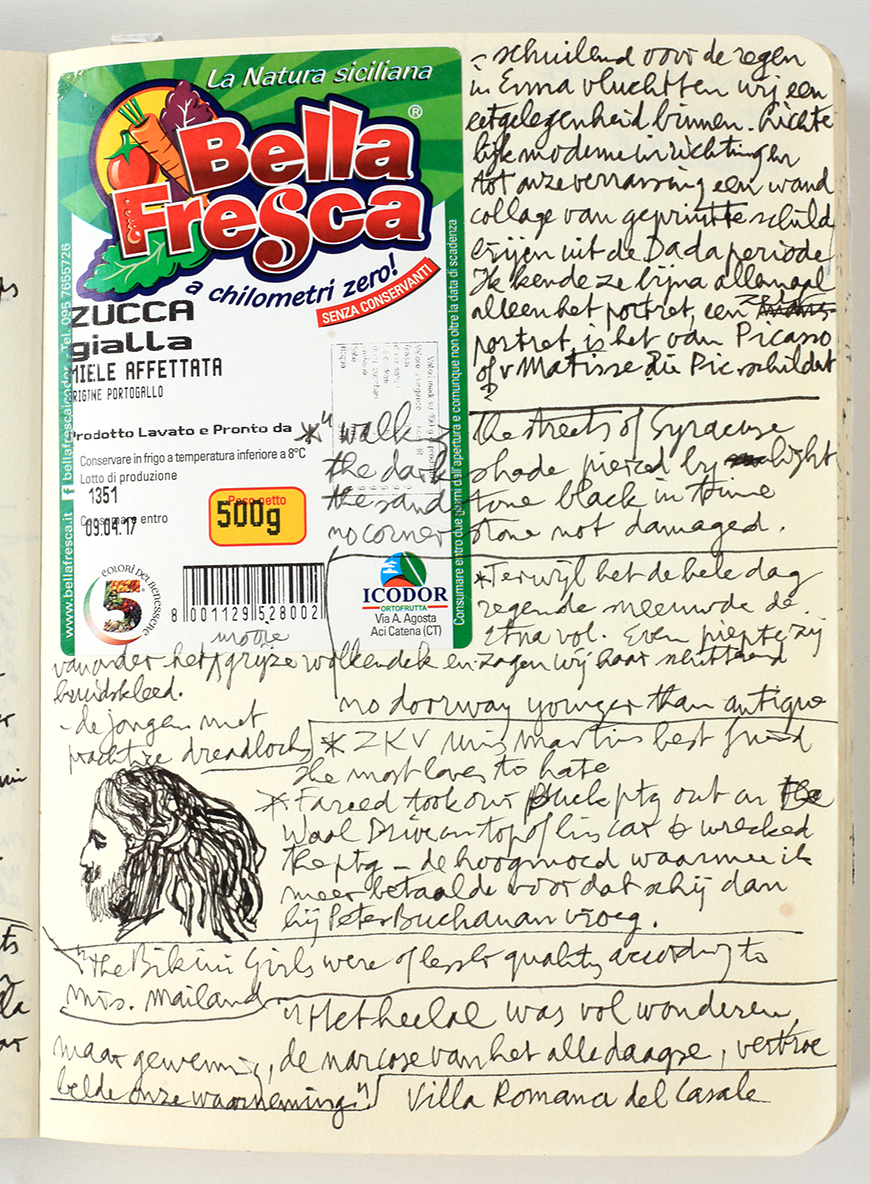 La Natura siciliana
Bella
Fresca
®
a chilometri zero!
SENZA CONSERVANTI
ZUCCA
gialla
MIELE AFFETTATA
ORIGINE PORTOGALLO
Prodotto Lavato e Pronto da
Conservare in frigo a temperatura inferiore a 8°C
Lotto di produzione
1351
Consumare entro
09.04.17
Peso netto
500g
COLORI DEL BENESSERE
5
8 001129 528002
ICODOR
ORTOFRUTTA
Via A. Agosta
Aci Catena (CT)
www.bellafresca.it
Tel. 095 7655726
Consumare entro due giorni dall'apertura e comunque non oltre la data di scadenza
- schuilend voor de regen
in Enna vluchtten wij een
eetgelegenheid binnen.
lijk moderne inrichtingen
tot onze verrassing een wand
collage van geprintte schild
erijen uit de Dada periode
Ik kende ze bijna allemaal
alleen het portret, een zelf
portret, is het van Picasso
of v Matisse die Pic schildert
?
*" walk the streets of Syracuse
the dark shade pierced by light
the sandstone black in time
no corner stone not damaged.
*Terwijl het de hele dag
regende sneeuwde de
Etna vol. Even piepte zij
vanonder het mooie grijze wolkendek en zagen wij haar schitterend
bruidskleed.
no doorway younger than antique
- de jongen met
prachtige dreadlocks
* ZKV Mrs Martins best friend
she most loves to hate
* Fareed took our ptg out on the
Waal Drive on top of his car & wrecked
the ptg - de hoogmoed waarmee ik
meer betaalde voor dat schij dan
hij Peter Buchanan vroeg.
"the Bikini Girls were of lesser quality according to
mrs. Mailand
"Het heelal was vol wonderen,
maar gewenning, de narcose van het alledaagse, vertroe
belde onze waarneming."
Villa Romana del Casale